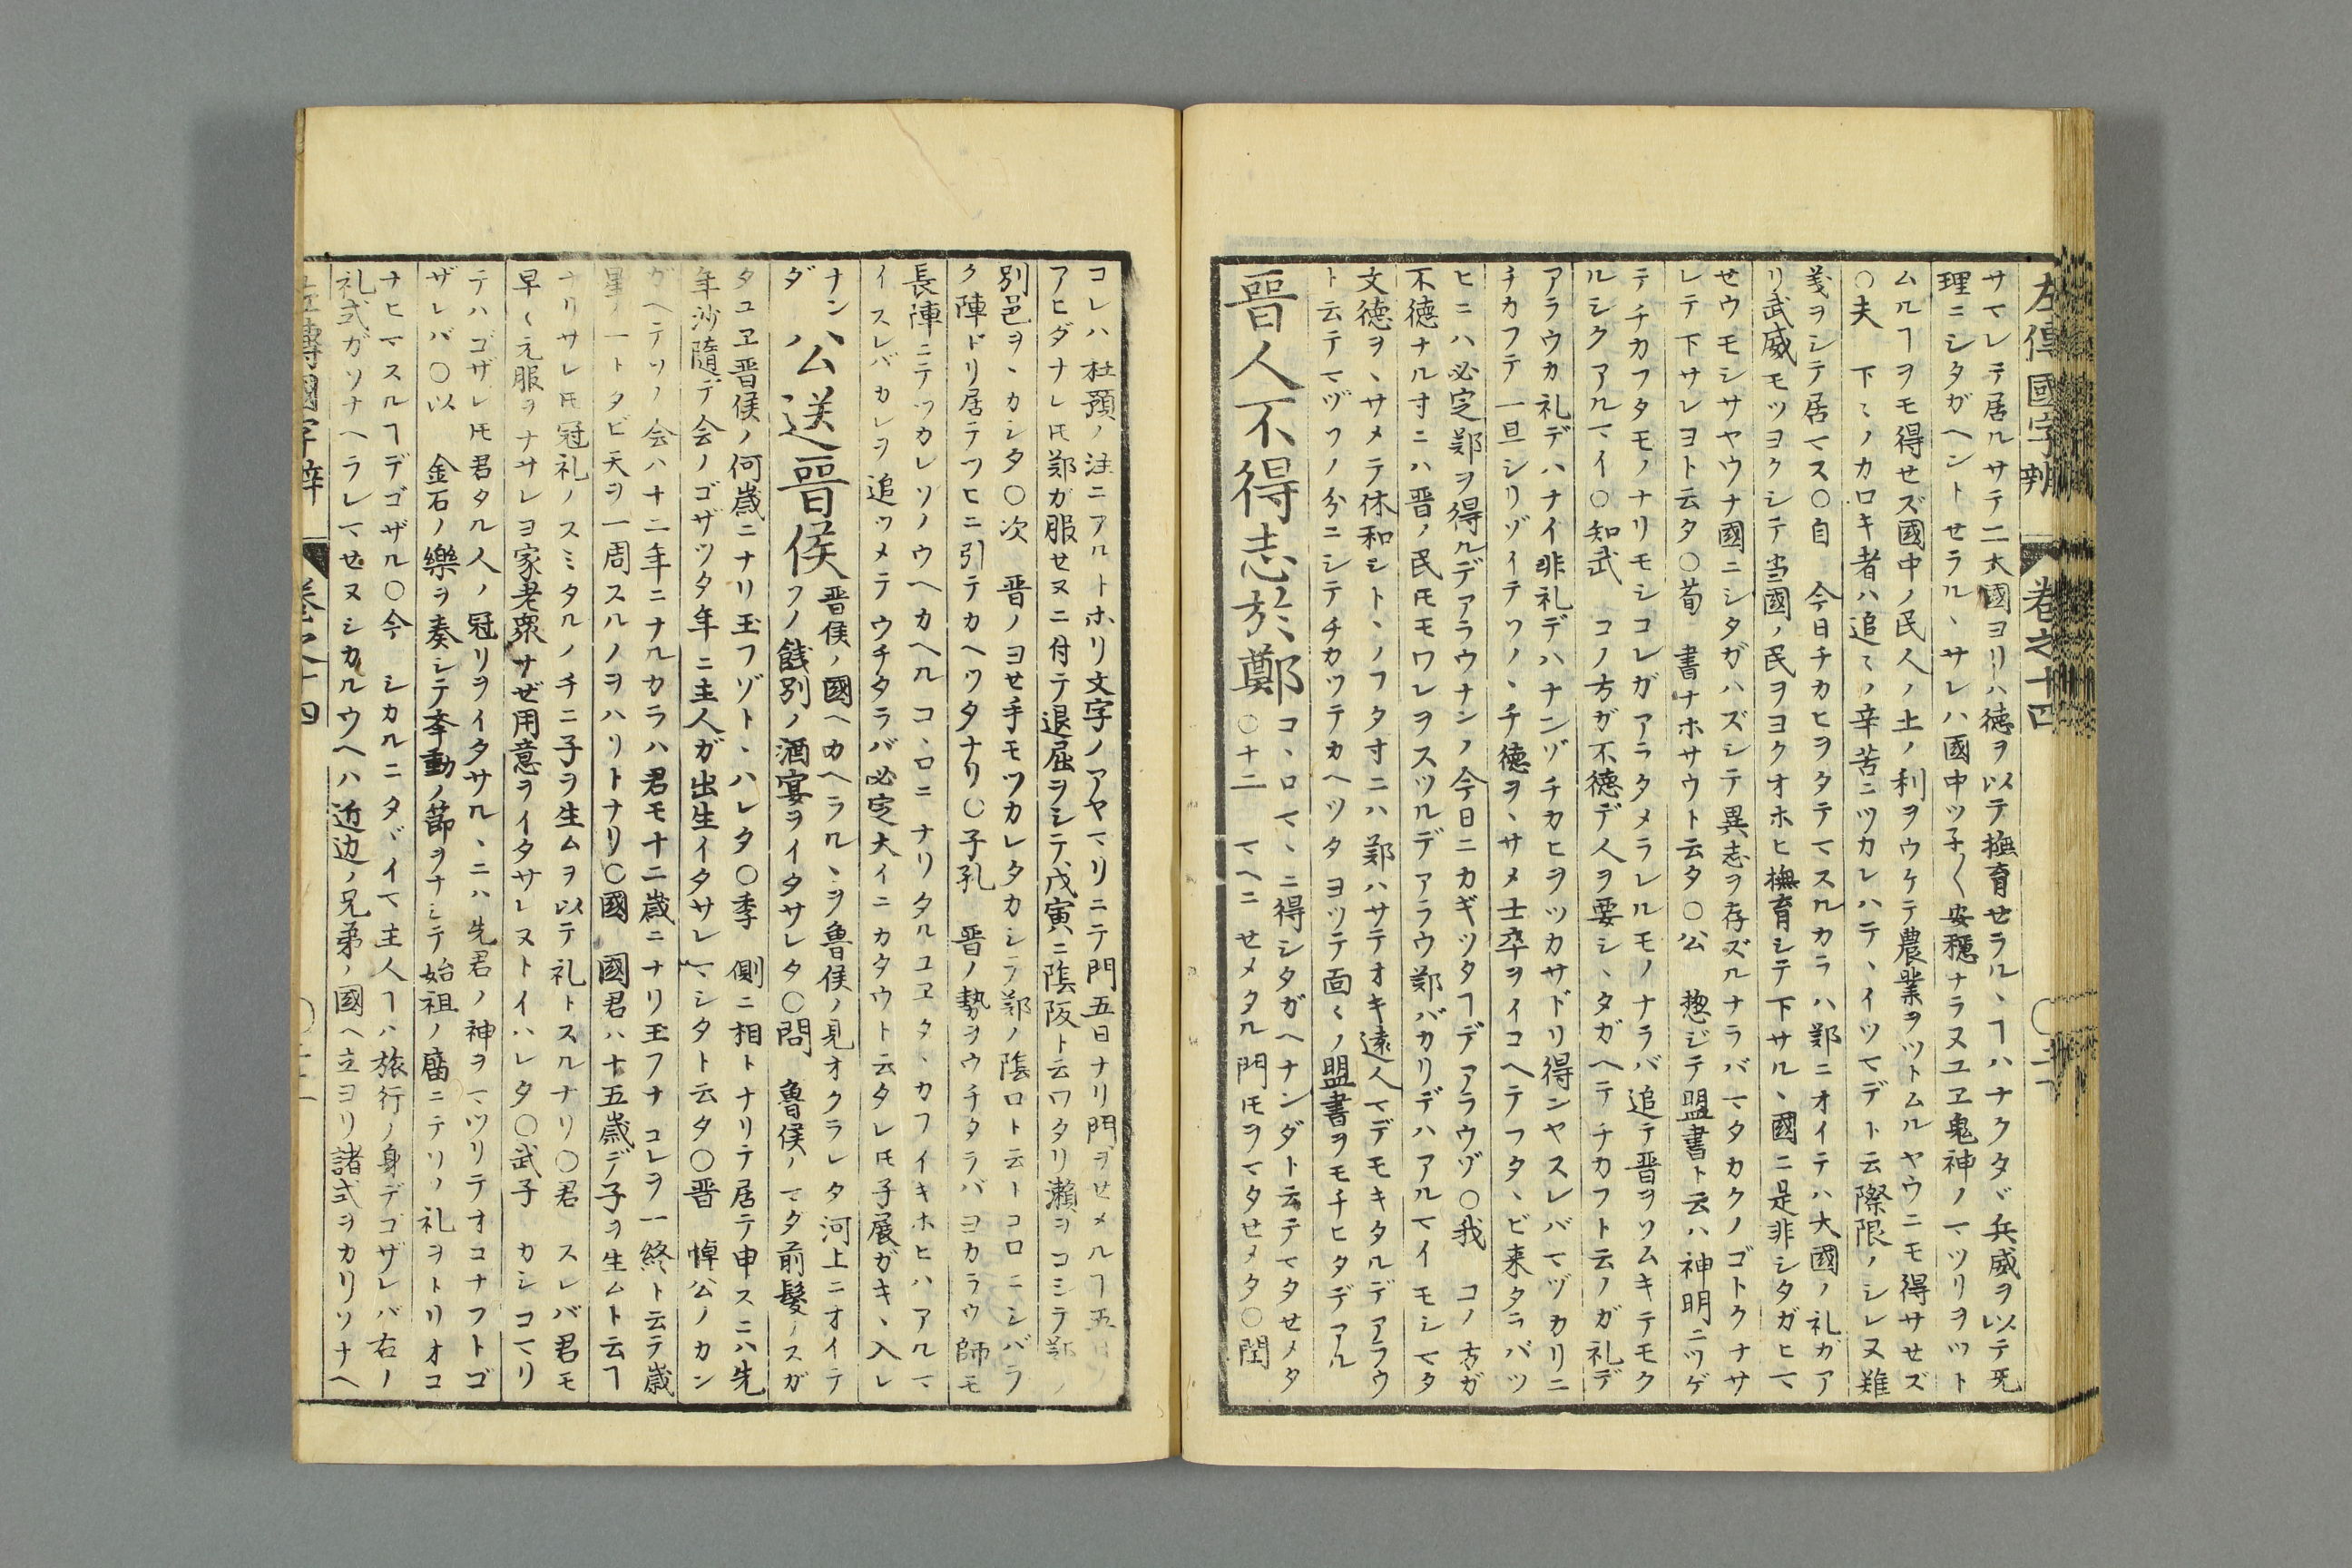 左傳國字辨 卷之十四
サマレテ居ルサテ二大國ヨリハ徳ヲ以テ撫育せラルヽヿハナクタヾ兵威ヲ以テ死
理ニシタガヘントせラルヽサレハ國中ツ子〱安穏ナラヌユヱ鬼神ノマツリヲツト
ムルヿヲモ得せズ國中ノ民人ノ土ノ利ヲウケテ農業ヲツトムルヤウニモ得サせズ
○夫 下〻ノカロキ者ハ追〻ノ辛苦ニツカレハテヽイツマデト云際限ノシレヌ難
義ヲシテ居マス○自 今日チカヒヲタテマスルカラハ鄭ニオイテハ大國ノ礼ガア
リ武威モツヨクシテ当國ノ民ヲヨクオホヒ撫育シテ下サルヽ國ニ是非シタガヒマ
せウモシサヤウナ國ニシタガハズシテ異志ヲ存ズルナラバマタカクノゴトクナサ
レテ下サレヨト云タ○荀 書ナホサウト云タ○公 惣ジテ盟書ト云ハ神明ニツゲ
テチカフタモノナリモシコレガアラタメラレルモノナラバ追テ晋ヲソムキテモク
ルシクアルマイ○知武 コノ方ガ不徳デ人ヲ要シヽタガヘテチカフト云ノガ礼デ
アラウカ礼デハナイ非礼デハナンゾチカヒヲツカサドリ得ンヤスレバマヅカリニ
チカフテ一旦シリゾイテソノヽチ徳ヲヽサメ士卒ヲイコヘテフタヽビ来タラバツ
ヒニハ必定鄭ヲ得ルデアラウナンノ今日ニカギツタヿデアラウゾ○我 コノ方ガ
不徳ナル寸ニハ晋ノ民𪜈モワレヲスツルデアラウ鄭バカリデハアルマイモシマタ
文徳ヲヽサメテ休和シトヽノフタ寸ニハ鄭ハサテオキ遠人マデモキタルデアラウ
ト云テマヅソノ分ニシテチカツテカヘツタヨツテ面〻ノ盟書ヲモチヒタデアル
晋人不得志於鄭 コヽロマヽニ得シタガヘナンダト云テマタせメタ
○十二 マヘニせメタル門𪜈ヲマタせメタ○閏
コレハ杜預ノ注ニアルトホリ文字ノアヤマリニテ門五日ナリ門ヲせメルヿ五日ノ
アヒダナレ𪜈鄭ガ服せヌニ付テ退屈ヲシテ戊寅ニ陰阪ト云ワタリ瀬ヲコシテ鄭ノ
別邑ヲヽカシタ○次 晋ノヨせ手モツカレタカシテ鄭ノ陰口ト云トコロニシバラ
ク陣ドリ居テツヒニ引テカヘツタナリ○子孔 晋ノ勢ヲウチタラバヨカラウ師モ
長陣ニテツカレソノウヘカヘルコヽロニナリタルユヱタヽカフイキホヒハアルマ
イスレバカレヲ追ツメテウチタラバ必定大イニカタウト云タレ𪜈子展ガキヽ入レ
ナンダ
公送晋侯 晋侯ノ國ヘカヘラルヽヲ魯侯ノ見オクラレタ河上ニオイテ
ソノ餞別ノ酒宴ヲイタサレタ○問 魯侯ノマダ前髮ノスガ
タユヱ晋侯ノ何歳ニナリ玉フゾトヽハレタ○季 側ニ相トナリテ居テ申スニハ先
年沙隨デ会ノゴザツタ年ニ主人ガ出生イタサレマシタト云タ○晋 悼公ノカン
ガヘテソノ会ハ十二年ニナルカラハ君モ十二歳ニナリ玉フナコレヲ一終ト云テ歳
星ノ一トタビ天ヲ一周スルノヲハリトナリ○國 國君ハ十五歳デ子ヲ生ムト云ヿ
ナリサレ𪜈冠礼ノスミタルノチニ子ヲ生ムヲ以テ礼トスルナリ○君 スレバ君モ
早〻元服ヲナサレヨ家老衆ナぜ用意ヲイタサレヌトイハレタ○武子 カシコマリ
テハゴザレ𪜈君タル人ノ冠リヲイタサルヽニハ先君ノ神ヲマツリテオコナフトゴ
ザレバ○以 金石ノ樂ヲ奏シテ挙動ノ節ヲナシテ始祖ノ廟ニテソノ礼ヲトリオコ
ナヒマスルヿデゴザル○今 シカルニタヾイマ主人ヿハ旅行ノ身デゴザレバ右ノ
礼式ガソナヘラレマせヌシカルウヘハ近辺ノ兄弟ノ國ヘ立ヨリ諸式ヲカリソナヘ
左傳國字辨 卷之十四